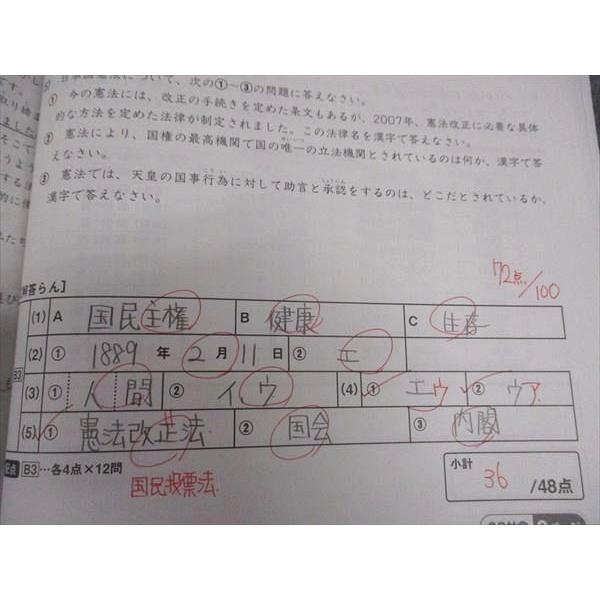 日本国憲法について、次の①～③の問題に答えなさい。
① 今の憲法には、改正の手続きを定めた条文もあるが、2007年、憲法改正に必要な具体
的な方法を定めた法律が制定されました。この法律名を漢字で答えなさい。
② 憲法により、国権の最高機関で国の唯一の立法機関とされているのは何か、漢字で答
えなさい。
③ 憲法では、天皇の国事行為に対して助言と承認をするのは、どこだとされているか、
漢字で答えなさい。
72点/100
解答らん]
(1) A 国民主権 B 健康 C 生存
(2) ① 1889 年 2 月 11 日 ② エ
(3) ① 人間 ② イ、ウ (4) ① エウ ② ウア
(5) ① 憲法改正法 ② 国会 ③ 内閣
B3…各4点×12問
国民投票法
小計 36 /48点